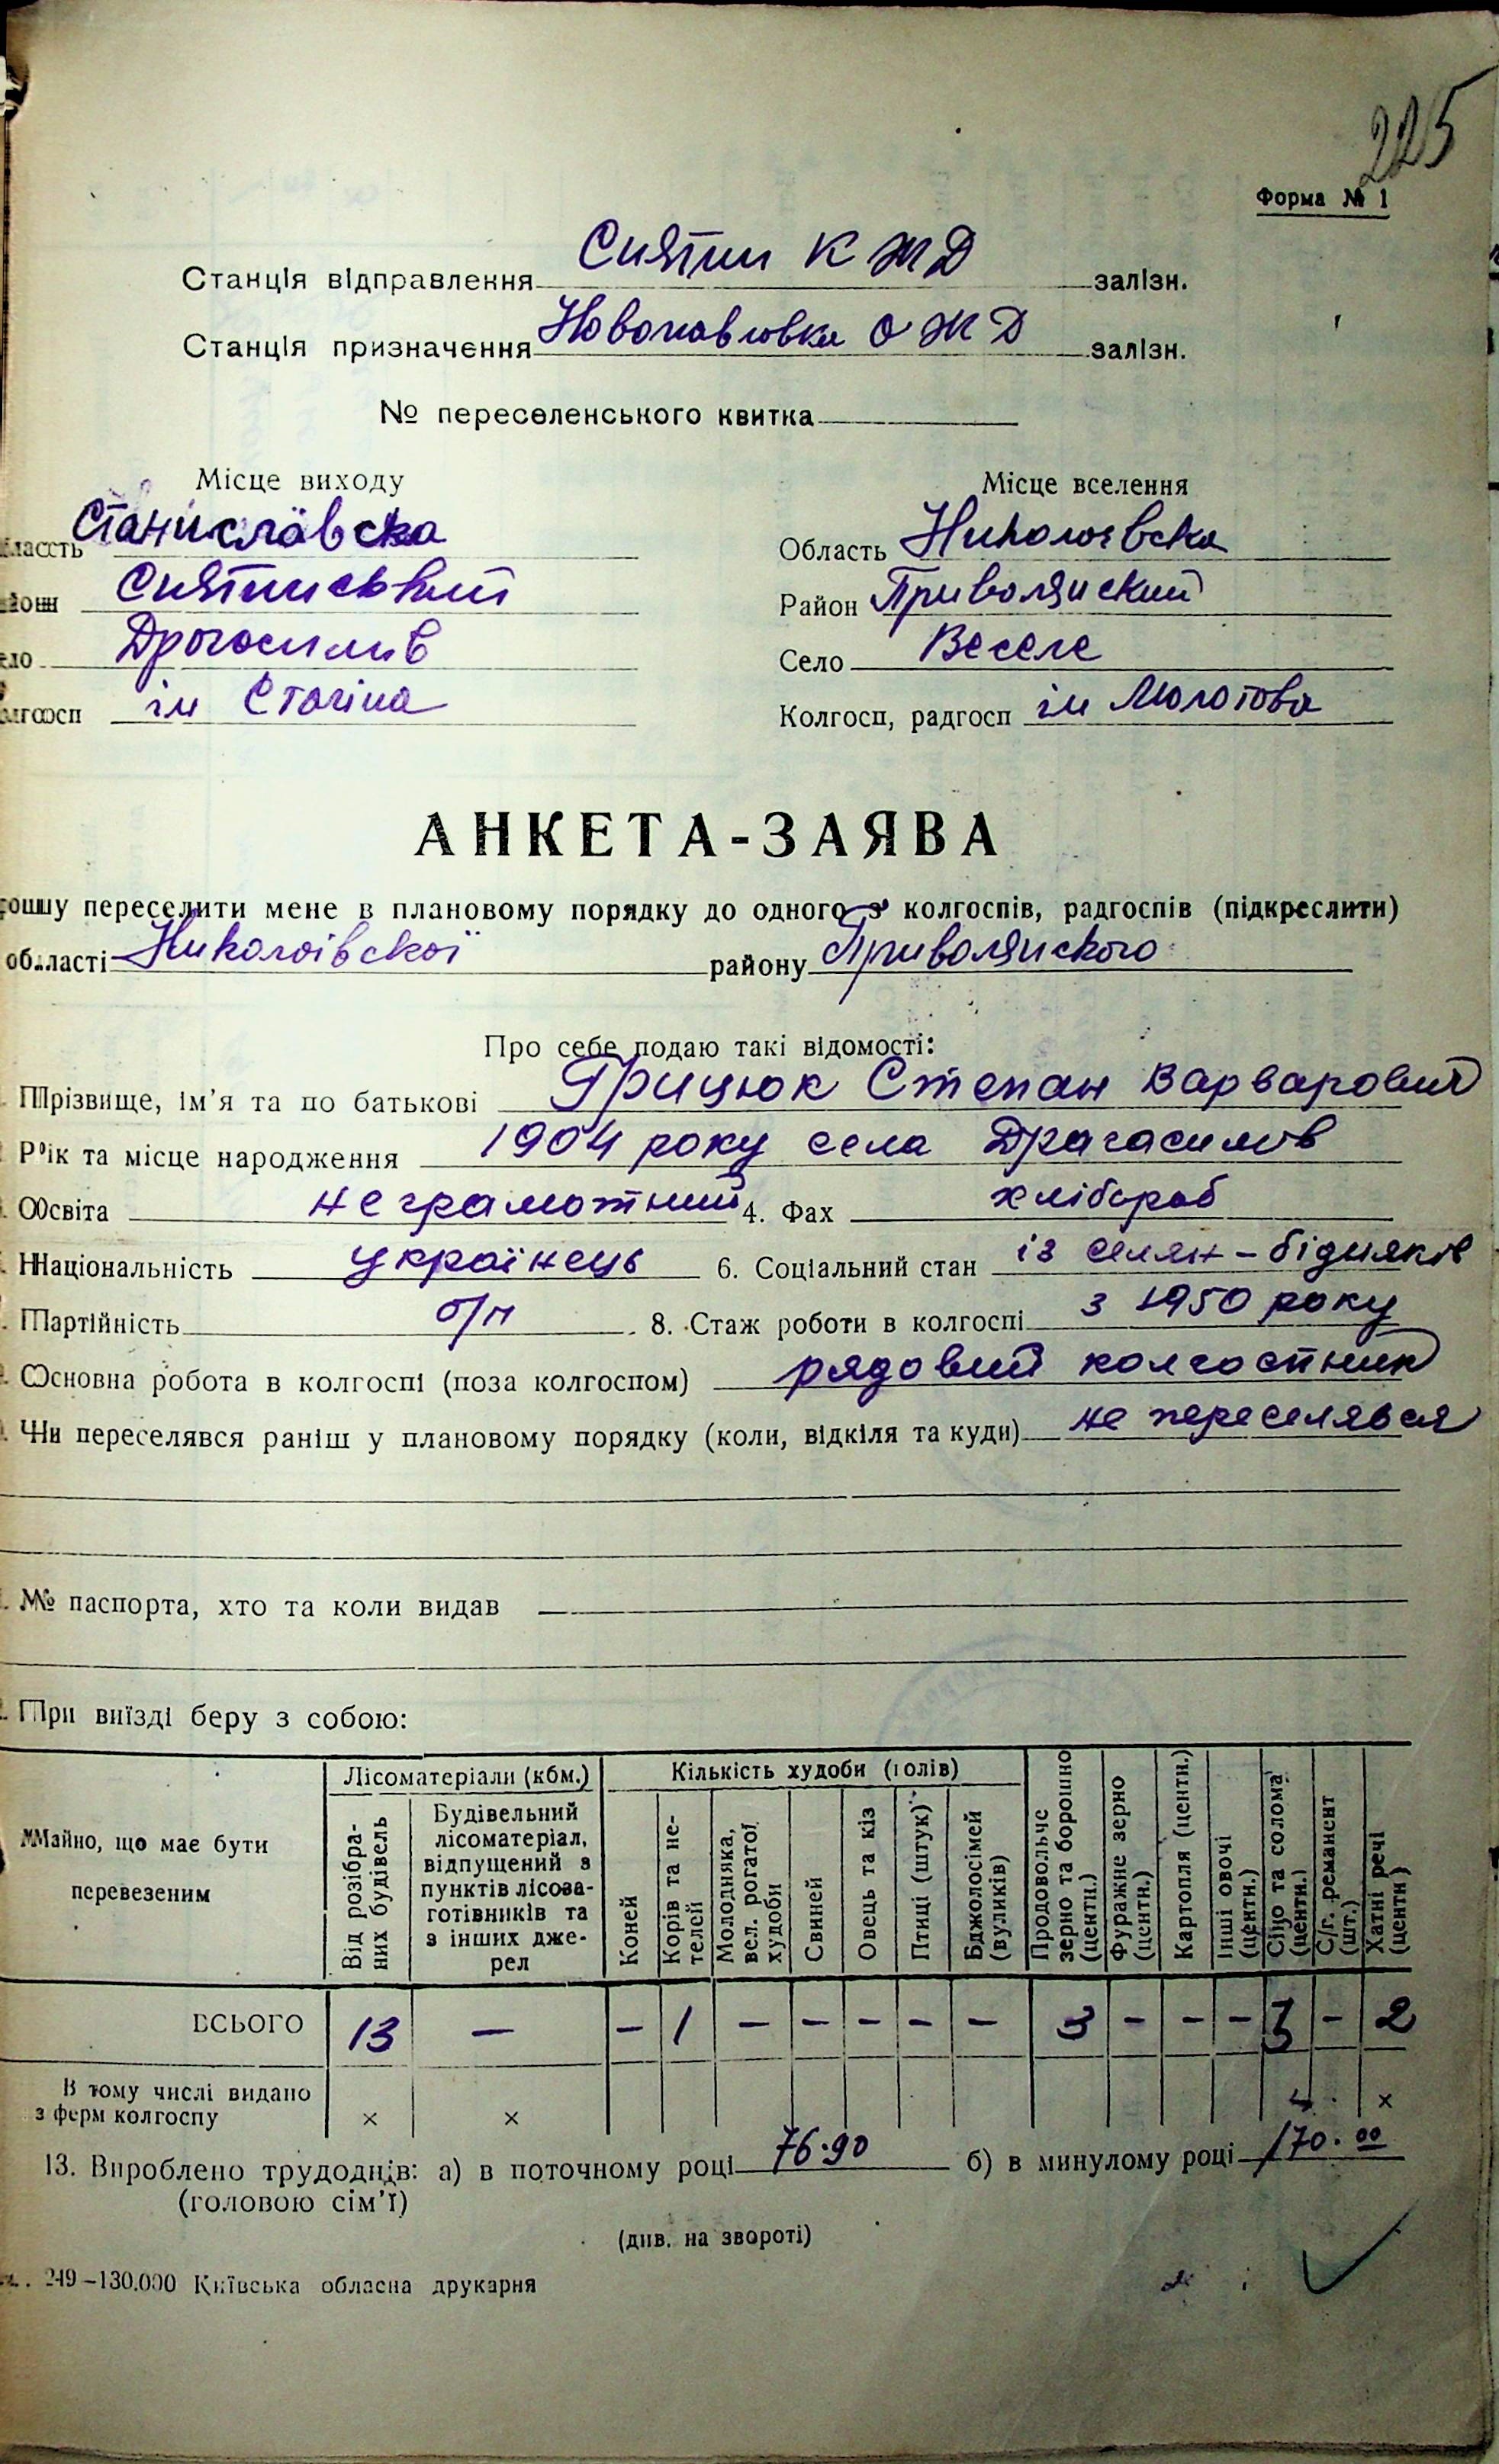 225
Форма № 1
Станція відправлення Снятин К ЖД залізн.
Станція призначення Новопавловка О ЖД залізн.
№ переселенського квитка
Місце виходу
Місце вселення
Станиславска
Область Николаевска
Снятинський
Район Приволянский
Дрогосимив
Село Веселе
ім Сталіна
Колгосп, радгосп ім Молотова
АНКЕТА-ЗАЯВА
переселити мене в плановому порядку до одного з колгоспів, радгоспів (підкреслити)
області Николаівскоі району Приволянского
Про себе подаю такі відомості:
Прізвище, ім’я та по батькові Грицюк Степан Варварович
Рік та місце народження 1904 року села Драгасимів
Освіта неграмотний 4. Фах хлібороб
Національність українець 6. Соціальний стан із селян-бідняків
Партійність б/п 8. Стаж роботи в колгоспі з 1950 року
Основна робота в колгоспі (поза колгоспом) рядовий колгоспник
Чи переселявся раніш у плановому порядку (коли, відкіля та куди) не переселявся
№ паспорта, хто та коли видав
При виїзді беру з собою:
Майно, що має бути перевезеним
Лісоматеріали (кбм.)
Від розібраних будівель
Будівельний лісоматеріал, відпущений з пунктів лісозаготівників та з інших джерел
Кількість худоби (голів)
Коней
Корів та нетелей
Молодняка, вел. рогатої худоби
Свиней
Овець та кіз
Птиці (штук)
Бджолосімей (вуликів)
Продовольче зерно та борошно (центн.)
Фуражне зерно (центн.)
Картопля (центн.)
Інші овочі (центн.)
Сіно та солома (центн.)
С/г. реманент (шт.)
Хатні речі (центн)
ВСЬОГО 13 — - 1 - - - - - 3 - - - 3 - 2
В тому числі видано
з ферм колгоспу × × ×
13. Вироблено трудоднів: а) в поточному році 76.90 б) в минулому році 170.00
(головою сім’ї)
(див. на звороті)
249—130.000 Київська обласна друкарня